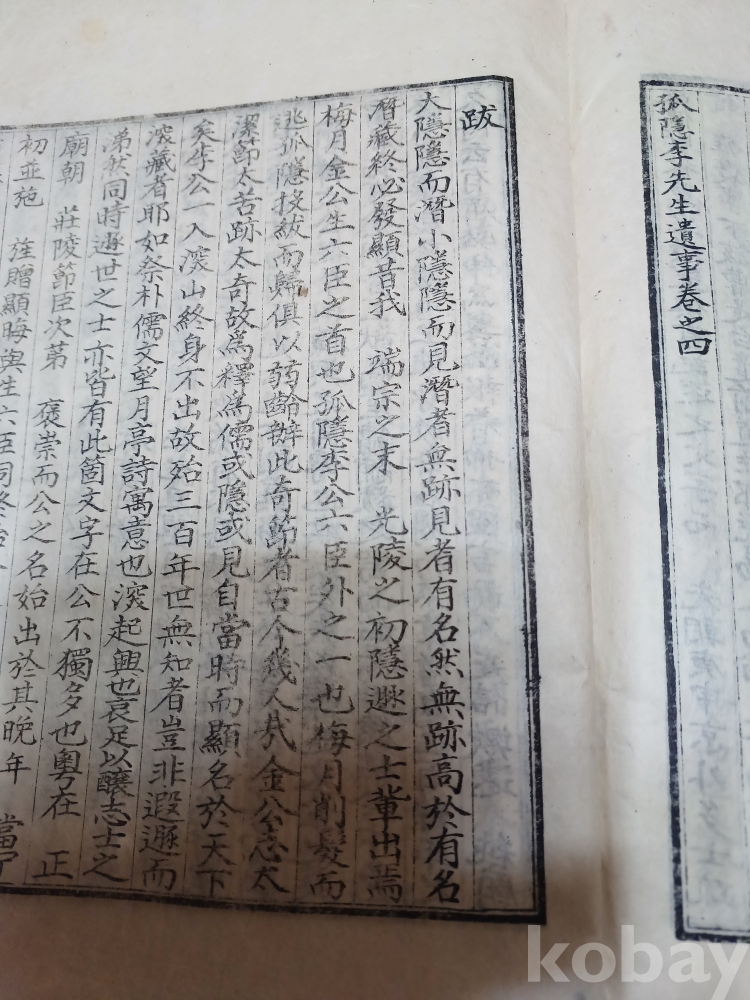 孤隱李先生遺事卷之四
跋
大隱隱而潛小隱隱而見潛者無跡見者有名然無跡高於有名
潛藏終必發顯昔我 端宗之末 光陵之初隱遯之士輩出焉
梅月金公生六臣之首也孤隱李公六臣外之一也梅月削髮而
逃孤隱投紱而歸俱以弱齡辦此奇節者古今幾人哉金公志太
潔節太苦跡太奇故爲釋爲儒或隱或見自當時而顯名於天下
矣李公一入深山終身不出故殆三百年世無知者豈非遐遯而
深藏者耶如祭朴儒文望月亭詩寓意也深起興也哀足以釀志士之
涕然同時遯世之士亦皆有此箇文字在公不獨多也粤在 正
廟朝 莊陵節臣次第 褒崇而公之名始出於其晩年 當宁
初並施 旌贈顯晦與生六臣同終始
kobay